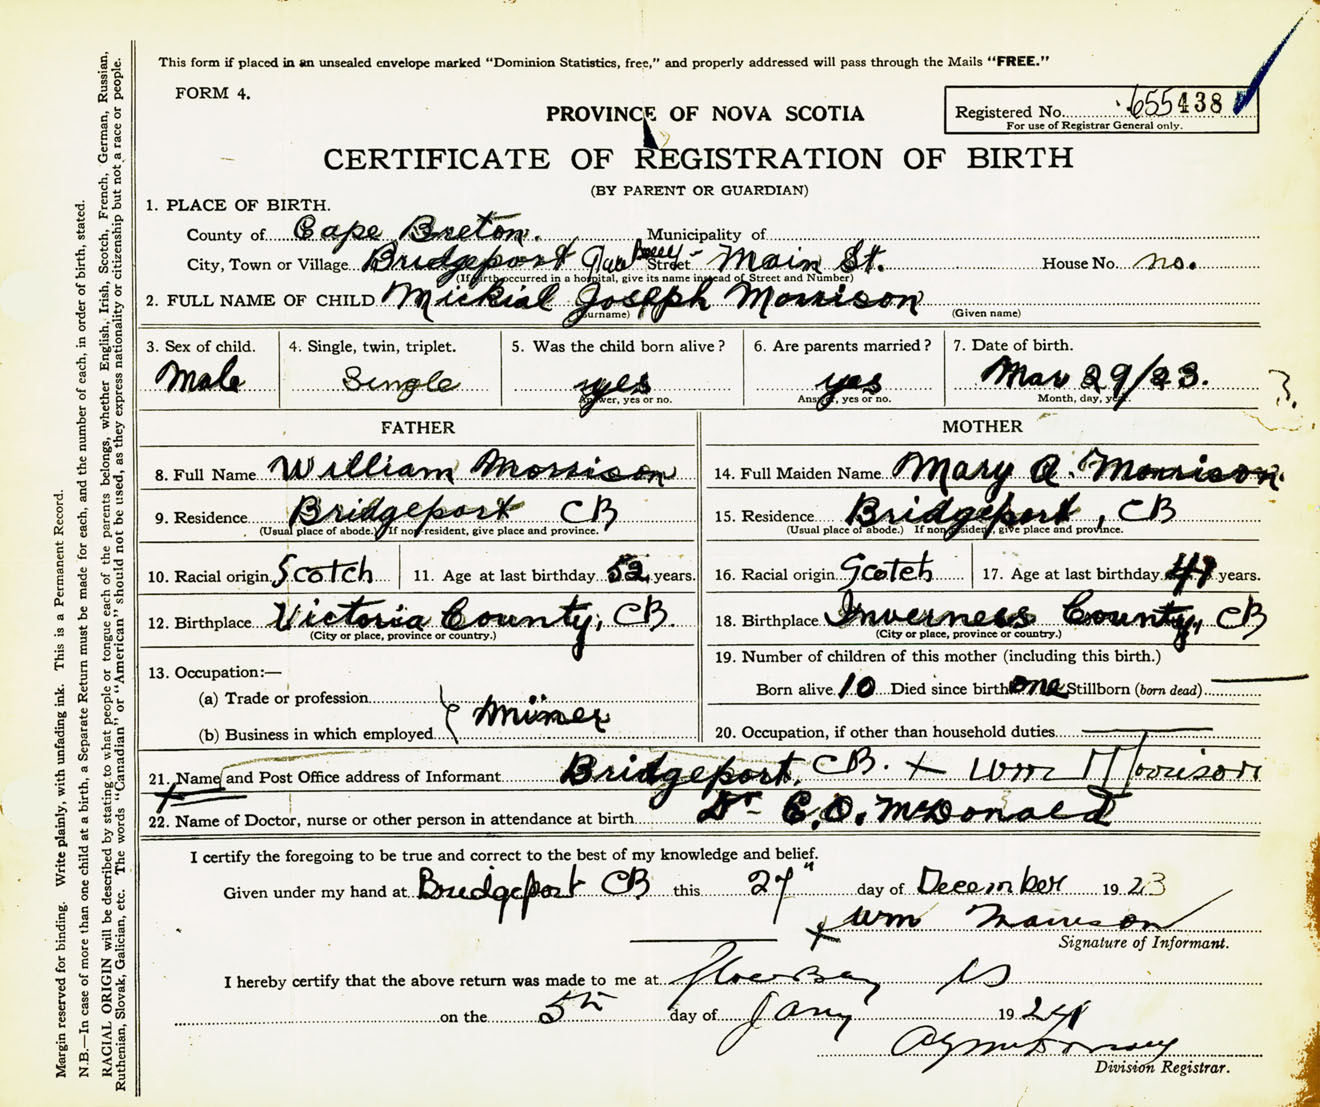 This form if placed in an unsealed envelope marked "Dominion Statistics, free," and properly addressed will pass through the Mails "FREE."
FORM 4.
Registered No. 655438
For use of Registrar General only.
PROVINCE OF NOVA SCOTIA
CERTIFICATE OF REGISTRATION OF BIRTH
(BY PARENT OR GUARDIAN)
1. PLACE OF BIRTH.
County of Cape Breton. Municipality of
City, Town or Village Bridgeport Street Main St. House No. no.
(If birth occurred in a hospital, give its name instead of Street and Number)
2. FULL NAME OF CHILD Mickial Joseph Morrison
(Surname) (Given name)
3. Sex of child. 4. Single, twin, triplet. 5. Was the child born alive? 6. Are parents married? 7. Date of birth.
Male Single yes yes Mar 29/23.
Answer, yes or no. Answer, yes or no. Month, day, year.
3.
FATHER MOTHER
8. Full Name William Morrison 14. Full Maiden Name Mary A. Morrison.
9. Residence Bridgeport CB 15. Residence Bridgeport, CB
(Usual place of abode.) If non-resident, give place and province. (Usual place of abode.) If non-resident, give place and province.
10. Racial origin Scotch 11. Age at last birthday 52 years. 16. Racial origin Scotch 17. Age at last birthday years.
12. Birthplace Victoria County, CB. 18. Birthplace Inverness County, CB
(City or place, province or country.) (City or place, province or country.)
13. Occupation:—
(a) Trade or profession
(b) Business in which employed Miner
19. Number of children of this mother (including this birth.)
Born alive 10 Died since birth one Stillborn (born dead)
20. Occupation, if other than household duties
21. Name and Post Office address of Informant Bridgeport, CB. x Wm Morrison
22. Name of Doctor, nurse or other person in attendance at birth Dr E.O. McDonald
I certify the foregoing to be true and correct to the best of my knowledge and belief.
Given under my hand at Bridgeport CB this 27" day of December 1923
x Wm Morrison
Signature of Informant.
I hereby certify that the above return was made to me at Glace Bay NS
on the 5th day of Jany 1924
Division Registrar.
Margin reserved for binding. Write plainly, with unfading ink. This is a Permanent Record.
N.B.—In case of more than one child at a birth, a Separate Return must be made for each, and the number of each, in order of birth, stated.
RACIAL ORIGIN will be described by stating to what people or tongue each of the parents belongs, whether English, Irish, Scotch, French, German, Russian,
Ruthenian, Slovak, Galician, etc. The words "Canadian" or "American" should not be used, as they express nationality or citizenship but not a race or people.